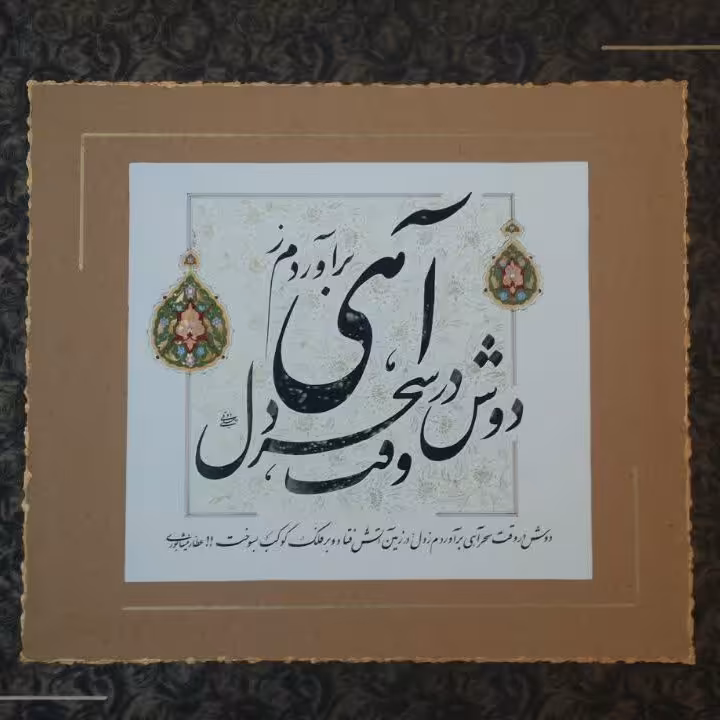 دوش در وقت سحر آهی برآوردم ز دل
دوش در وقت سحر آهی برآوردم ز دل در زمین آتش فتاد و بر فلک کوکب بسوخت !! عطار نیشابوری